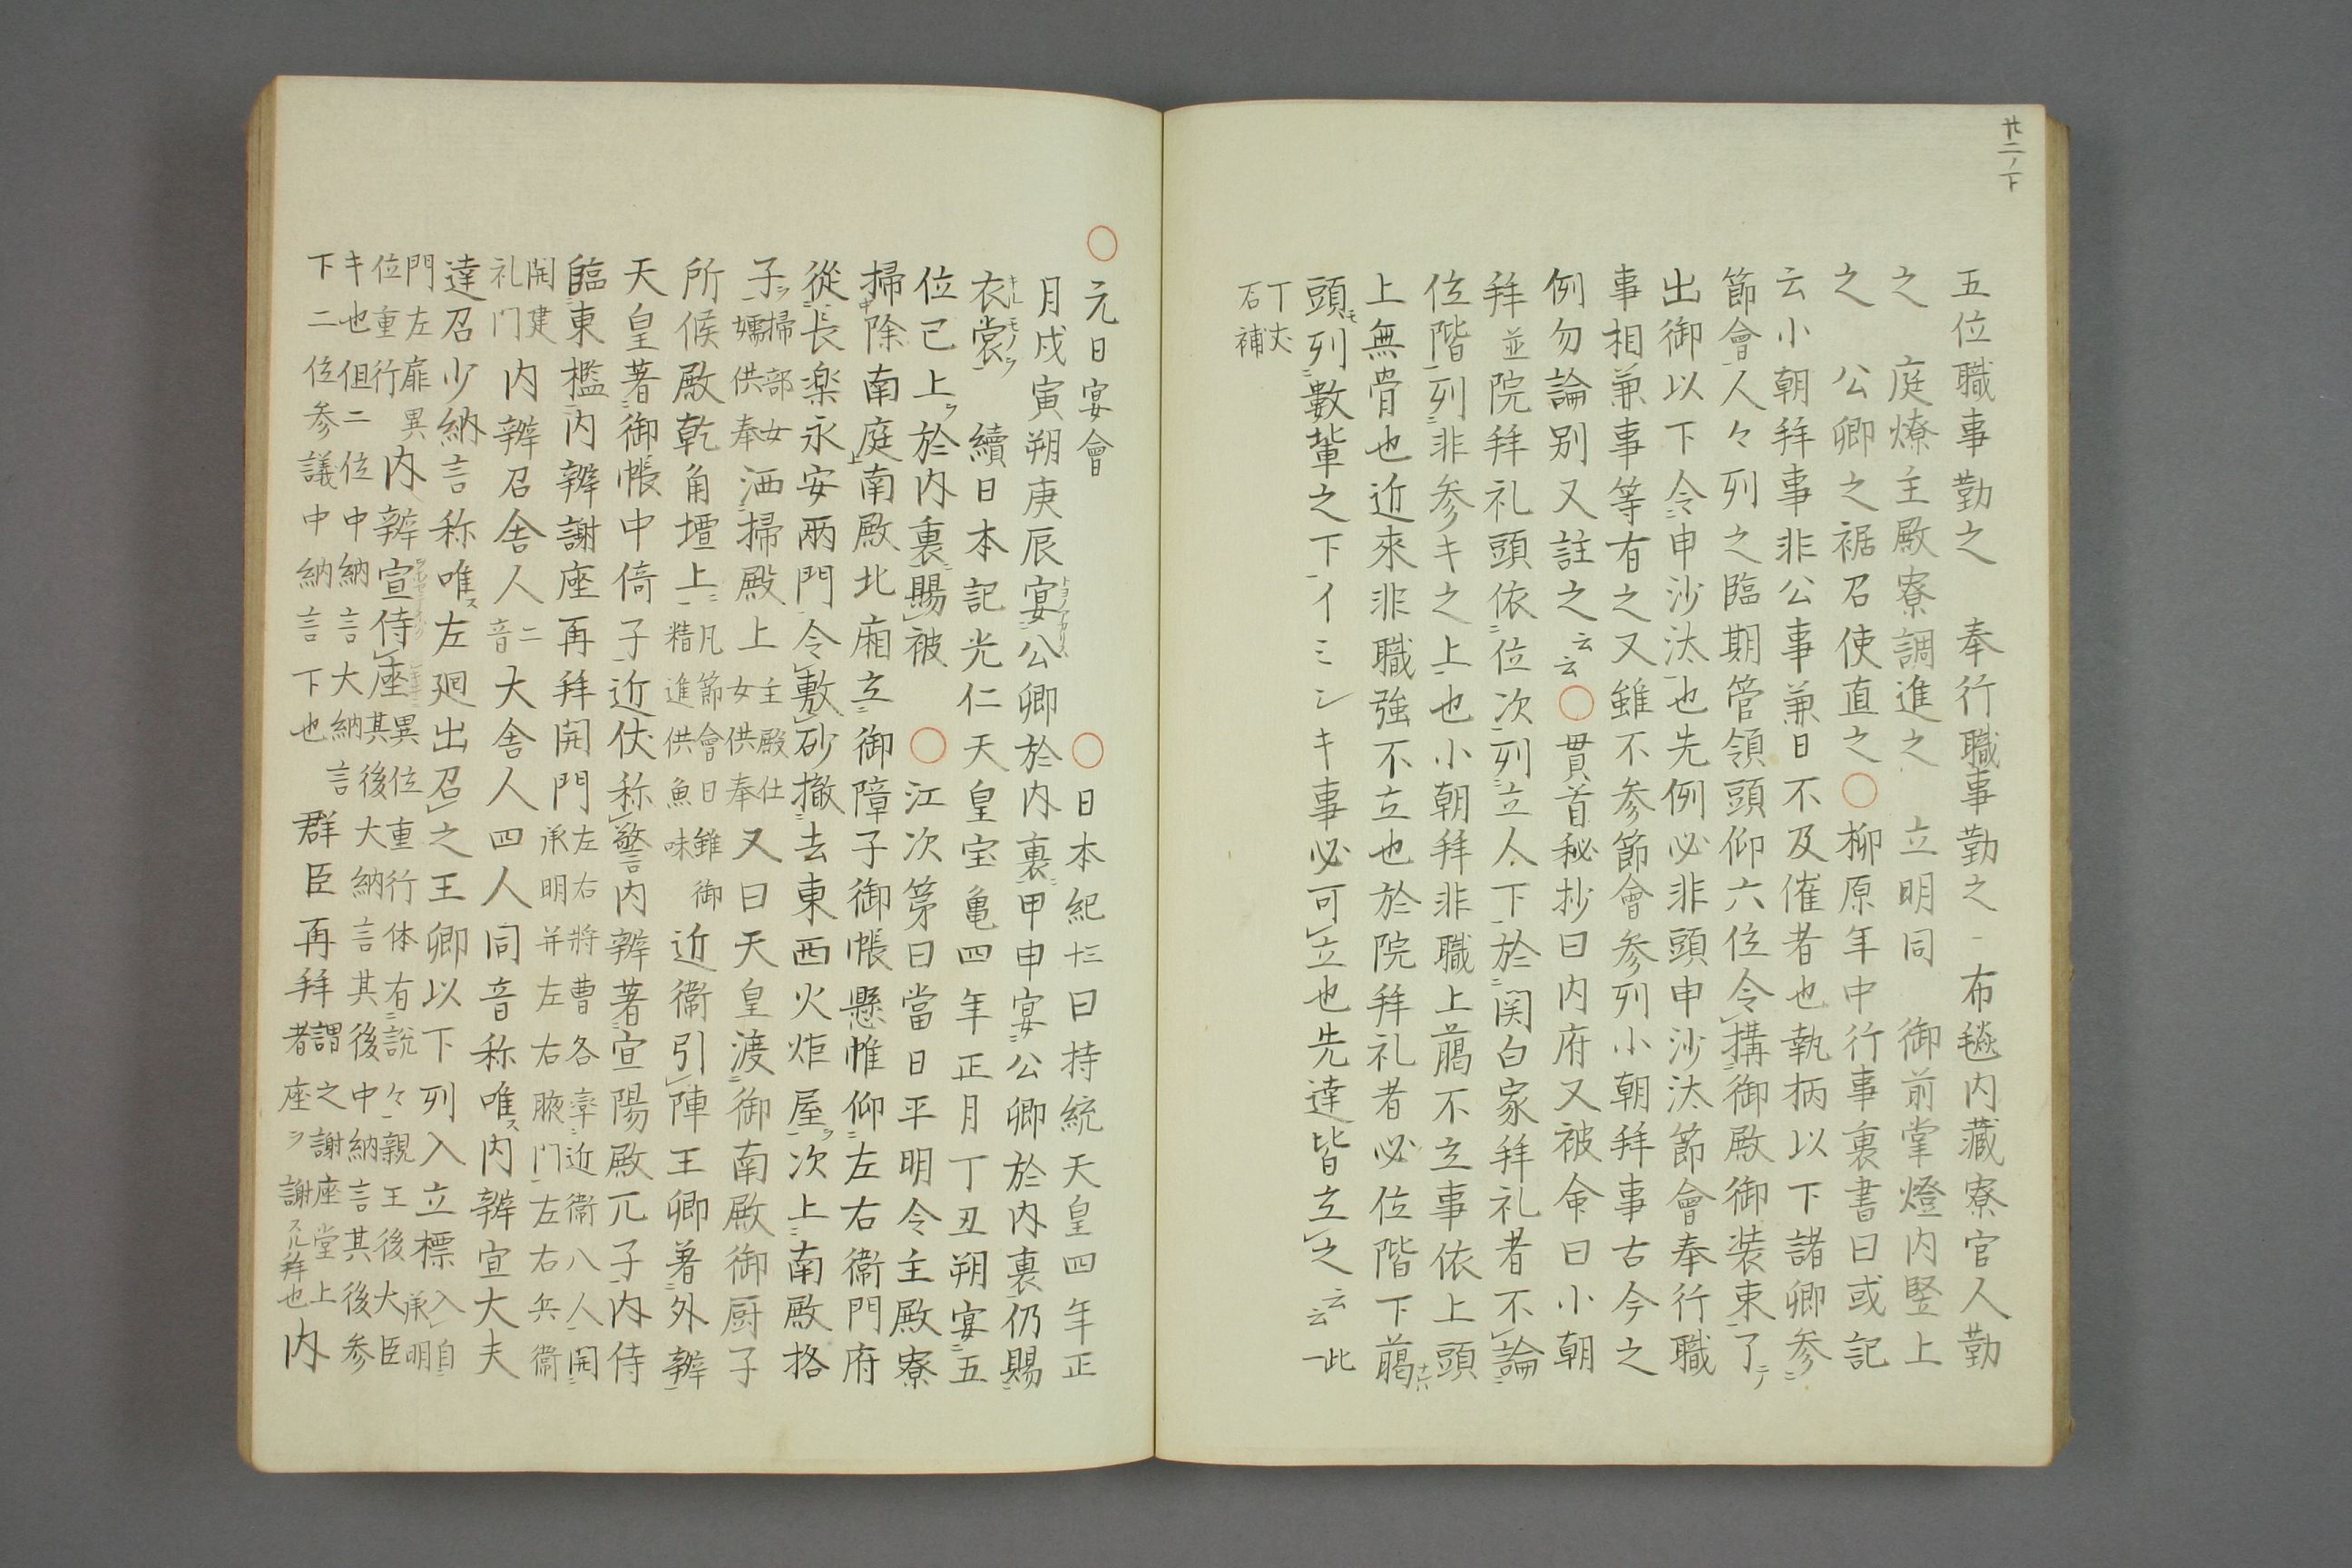 廿二ノ下
五位職事勤之　奉行職事勤之　布毯内藏寮官人勤
之　庭燎主殿寮調進之　立明同　御前掌燈内竪上
之　公卿之裾召使直之○柳原年中行事裏書曰或記
云小朝拜事非公事兼日不及催者也執柄以下諸卿参
節會人々列之臨期管領頭仰六位令搆御殿御装束了
出御以下令申沙汰也先例必非頭申沙汰節會奉行職
事相兼事等有之又雖不参節會参列小朝拜事古今之
例勿論別又註之云云○貫首秘抄曰内府又被命曰小朝
拜並院拜礼頭依位次列立人下於関白家拜礼者不論
位階列非参キ之上也小朝拜非職上﨟不立事依上頭
上無骨也近來非職強不立也於院拜礼者必位階下﨟
頭モ列數輩之下イミシキ事必可立也先達皆立之云云
此一丁丈石補
○元日宴會　○日本紀卅曰持統天皇四年正
月戊寅朔庚辰宴公卿於内裏甲申宴公卿於内裏仍賜
衣裳　續日本記光仁天皇宝亀四年正月丁丑朔宴五
位已上於内裏賜被　○江次第曰當日平明令主殿寮
掃除南庭南殿北廂立御障子御帳懸帷仰左右衞門府
從長楽永安兩門令敷砂撤去東西火炬屋次上南殿格
子掃部女嬬供奉洒掃殿上主殿仕女供奉又曰天皇渡御南殿御厨子
所候殿乾角壇上凡節會日雖御精進供魚味近衞引陣王卿着外辨
天皇著御帳中倚子近仗称警内辨著宣陽殿兀子内侍
臨東檻内辨謝座再拜開門左右將曹各率近衞八人開承明并左右腋門左右兵衞
開建礼门内辨召舎人二音大舎人四人同音称唯内辨宣大夫
達召少納言称唯左廻出召之王卿以下列入立標入自承明
門左扉異位重行内辨宣侍座異位重行体有説々親王後大臣其後大納言其後中納言其後参
キ也但二位中納言大納言下二位参議中納言下也群臣再拜謂之謝座堂上者座ヲ謝スル拜也内